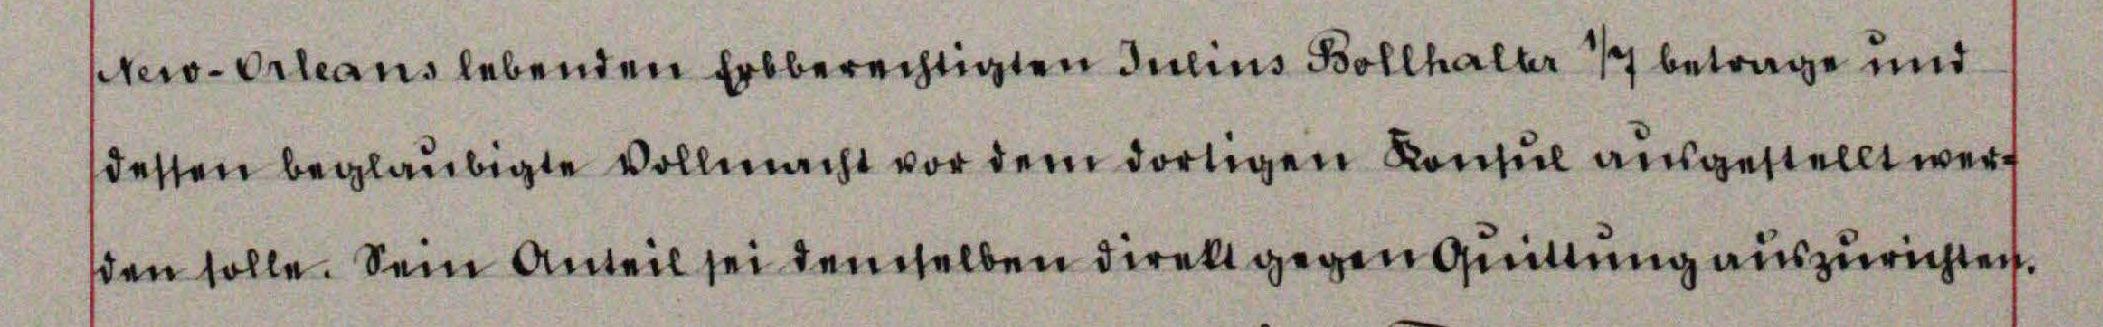 New-Orleans lebenden Erbberechtigten Julius Bollhalter 1/7 betrage und
dessen beglaubigte Vollmacht vor dem dortigen Konsul ausgestellt wer-
den solle. Sein Anteil sei demselben direkt gegen Quittung auszurichten.